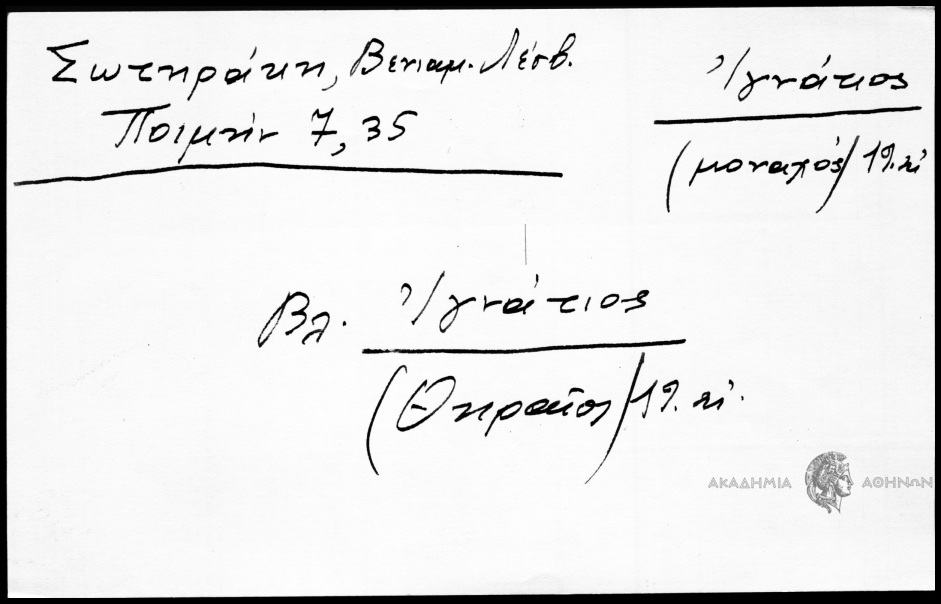 Σωτηράκη, Βενιαμ. Λέσβ.
Ποιμήν 7, 35
Ἰγνάτιος
(μοναχός) 19. αἰ
Βλ. Ἰγνάτιος
(Θηραῖος) 19. αἰ.
ΑΚΑΔΗΜΙΑ ΑΘΗΝΩΝ